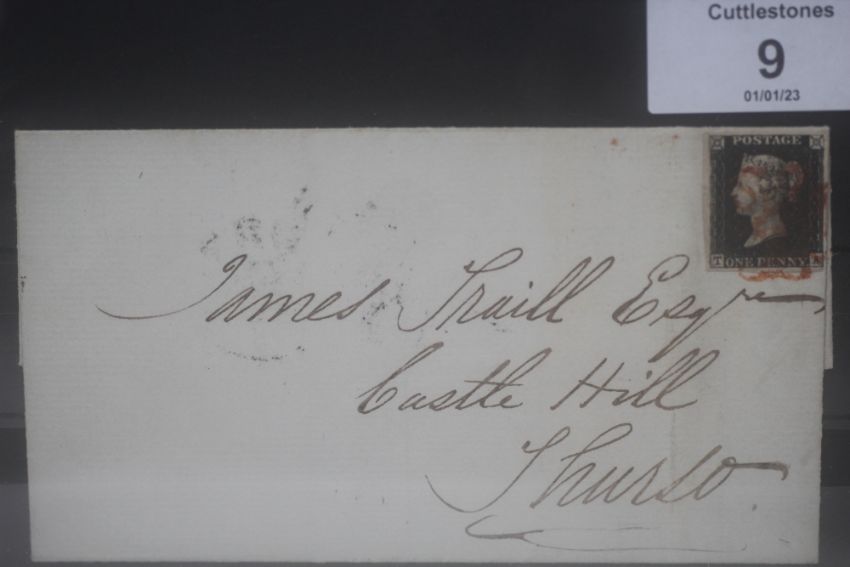 Cuttlestones
9
01/01/23
POSTAGE
T ONE PENNY
James Traill Esqre
Castle Hill
Thurso